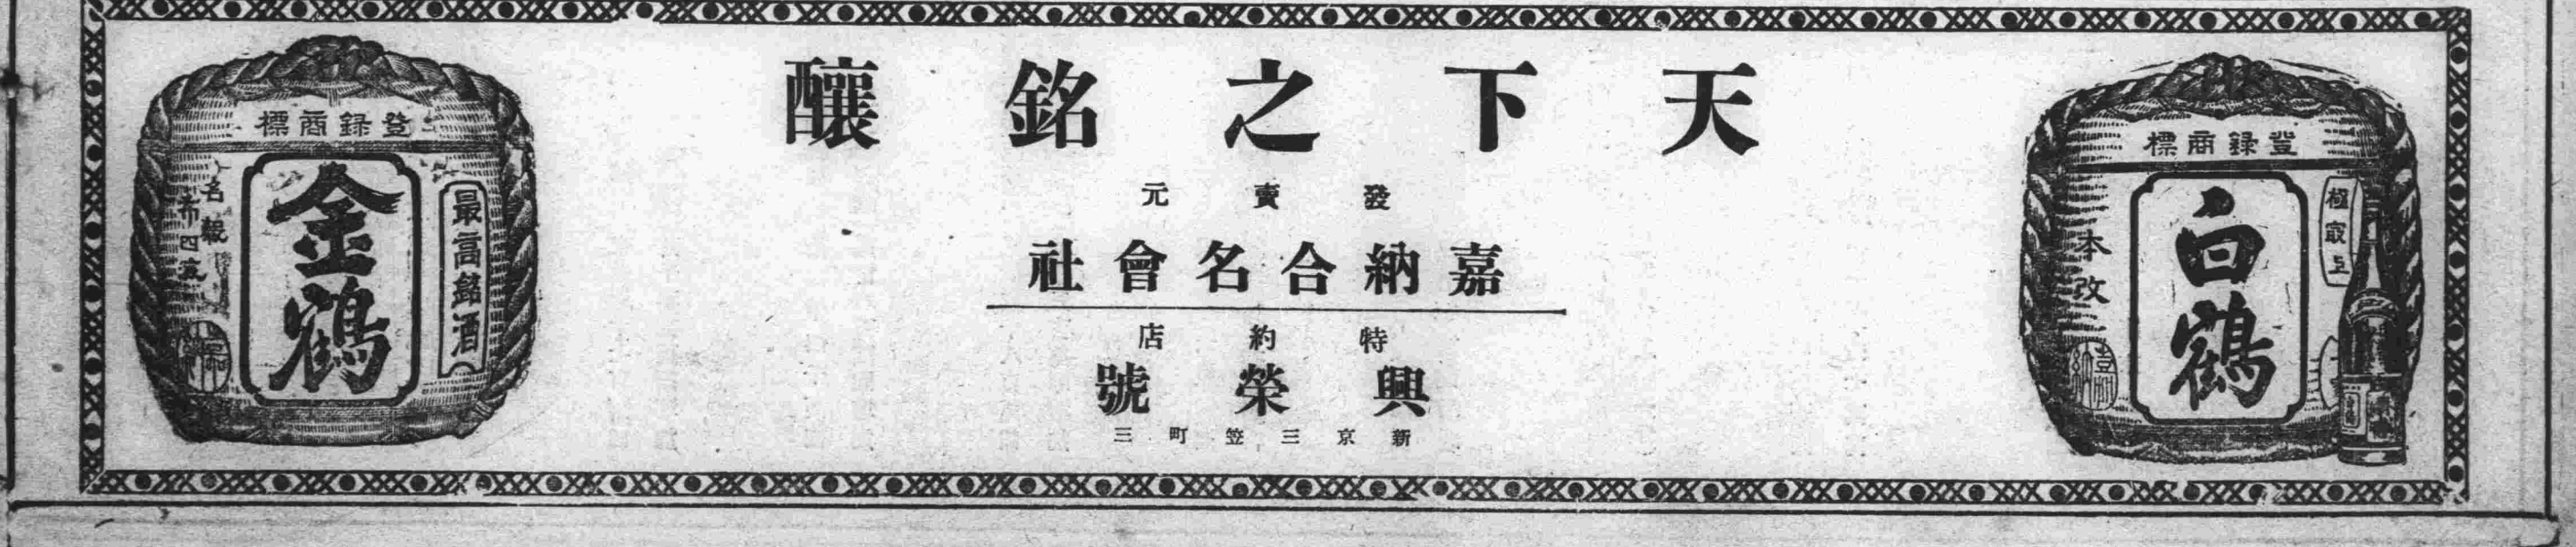 天下之銘釀
發賣元
嘉納合名會社
特約店
興榮號
新京三笠町三
登錄商標
白鶴
極最上
本改
嘉納
登錄商標
金鶴
最高銘酒